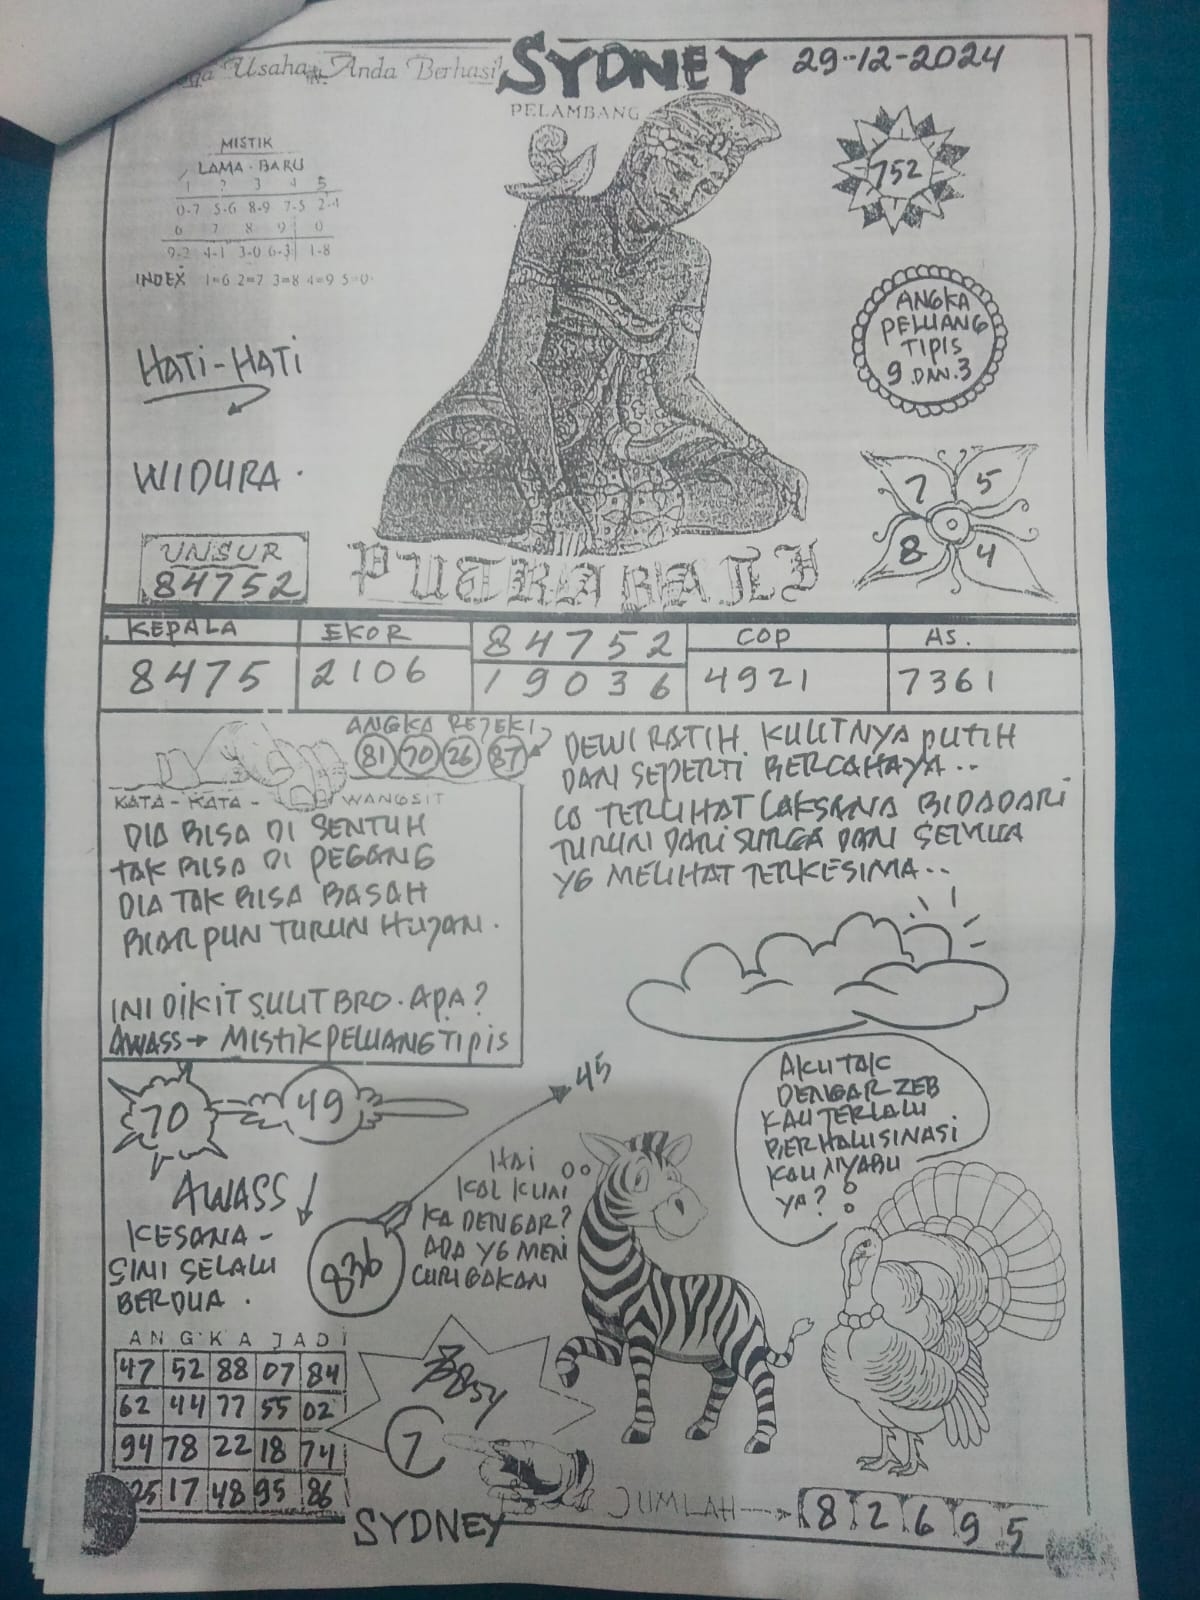 Usaha Anda Berhasil
SYDNEY 29-12-2024
PELAMBANG
MISTIK
LAMA - BARU
1 2 3 4 5
0-7 5-6 8-9 7-5 2-4
6 7 8 9 0
9-2 4-1 3-0 6-3 1-8
INDEX 1=6 2=7 3=8 4=9 5=0
752
ANGKA
PELUANG
TIPIS
9 DAN 3
HATI-HATI
WIDURA.
7 5
8 4
UNSUR
84752
PUTRA BALI
KEPALA EKOR 84752 COP AS.
8475 2106 19036 4921 7361
ANGKA REJEKI
81 70 26 87
KATA-KATA - WANGSIT
DIA BISA DI SENTUH
TAK BISA DI PEGANG
DIA TAK BISA BASAH
BIAR PUN TURUN HUJAN.
INI DIKIT SULIT BRO. APA?
AWASS → MISTIK PELUANG TIPIS
DEWI RATIH. KULITNYA PUTIH
DAN SEPERTI BERCAHAYA..
TERLIHAT LAKSANA BIDADARI
TURUN DARI SURGA DAN SEMUA
YG MELIHAT TERKESIMA..
70 49
45
AWASS ↓
KESANA -
SINI SELALU
BERDUA.
836
HAI
KAL KUN
KA DENGAR?
ADA YG MEN
CURIGAKAN
AKU TAK
DENGAR ZEB
KAU TERLALU
BERHALUSINASI
KAU NYABU
YA?
ANGKA JADI
47 52 88 07 84
62 44 77 55 02
94 78 22 18 74
25 17 48 95 86
7
JUMLAH → 8 2 6 9 5
SYDNEY